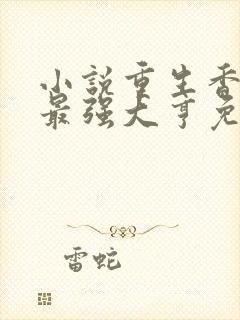 小說重生香
最强大亨免
雷蛇